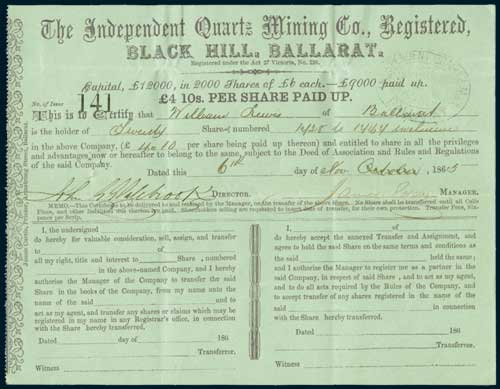 The Independent Quartz Mining Co., Registered,
BLACK HILL, BALLARAT.
Registered under the Act 27 Victoria, No. 228.
Capital, £12000, in 2000 Shares of £6 each.—£9000 paid up.
No. of Issue £4 10s. PER SHARE PAID UP.
141
This is to Certify that William of Ballarat
is the holder of Twenty Shares numbered to inclusive
in the above Company, (£ 4 10 per share being paid up thereon) and entitled to share in all the privileges and
advantages now or hereafter to belong to the same, subject to the Deed of Association and Rules and Regulations
of the said Company.
Dated this 6th day of Nov October 1865
John DIRECTOR. MANAGER.
MEMO.—This Certificate to be delivered to and retained by the Manager, on the transfer of the above Shares. No Share shall be transferred until all Calls
Fines, and other liabilities due thereon are paid. Shareholders selling are requested to insert date of transfer, for their own protection. Transfer Fees, Sixpence per Scrip.
I, the undersigned
do hereby for valuable consideration, sell, assign, and transfer
to of
all my right, title and interest to Share , numbered
in the above-named Company, and I hereby
authorise the Manager of the Company to transfer the said
Share in the books of the Company, from my name unto the
name of the said and to
act as my agent, and transfer any shares or claims which may be
registered in my name in any Registrar's office, in connection
with the Share hereby transferred.
Dated day of 186
Transferror.
Witness
I, the undersigned
of
do hereby accept the annexed Transfer and Assignment, and
agree to hold the said Share on the same terms and conditions as
the said held the same;
and I authorise the Manager to register me as a partner in the
said Company, in respect of said Share , and to act as my agent,
and to do all acts required by the Rules of the Company, and
to accept transfer of any shares registered in the name of the
said in connection
with the Share hereby transferred.
Dated 186
Transferree.
Witness